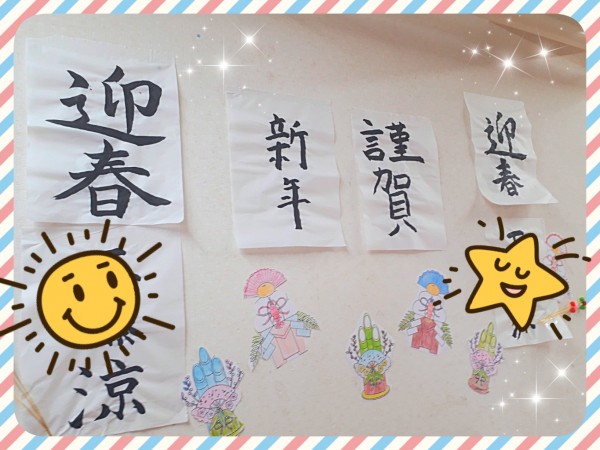 迎春
謹賀
新年
迎春
涼